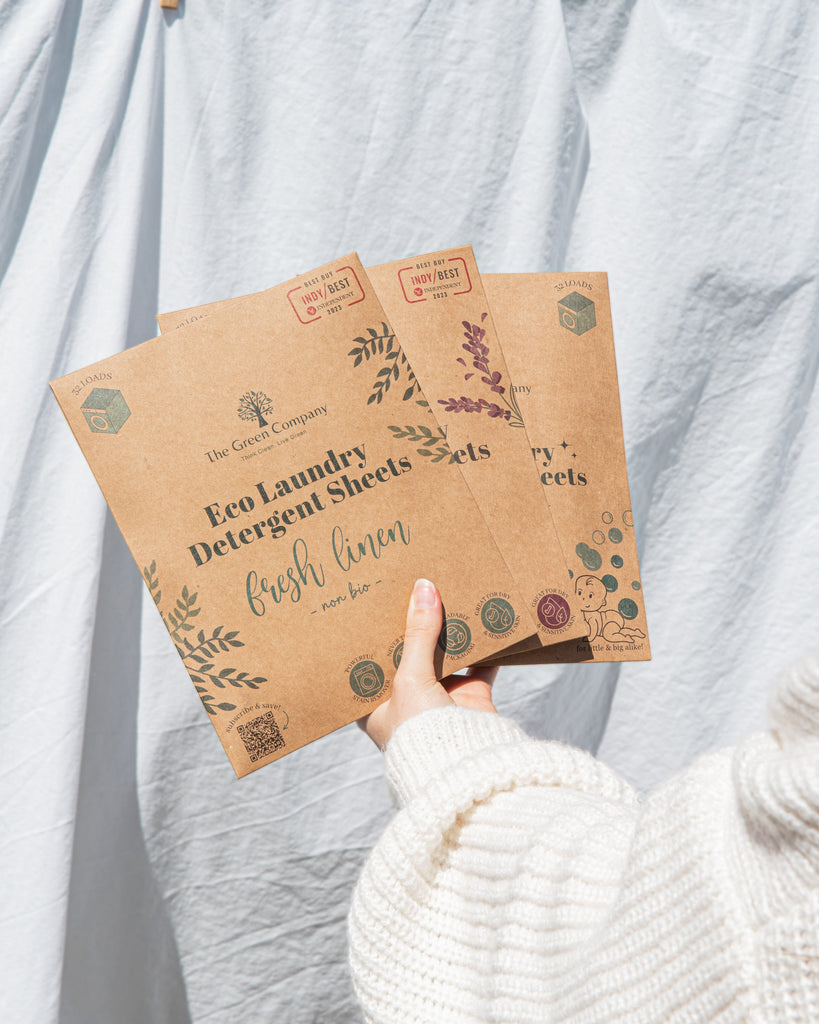 32 LOADS
BEST BUY
INDY/BEST
INDEPENDENT
2023
The Green Company
Think Clean. Live Green
Eco Laundry
Detergent Sheets
fresh linen
- non bio -
POWERFUL
STAIN REMOVER
PACKAGING
GREAT FOR DRY
& SENSITIVE SKIN
subscribe & save!
BEST BUY
INDY/BEST
INDEPENDENT
2023
eets
GREAT FOR DRY
& SENSITIVE SKIN
32 LOADS
any
ry
eets
for little & big alike!